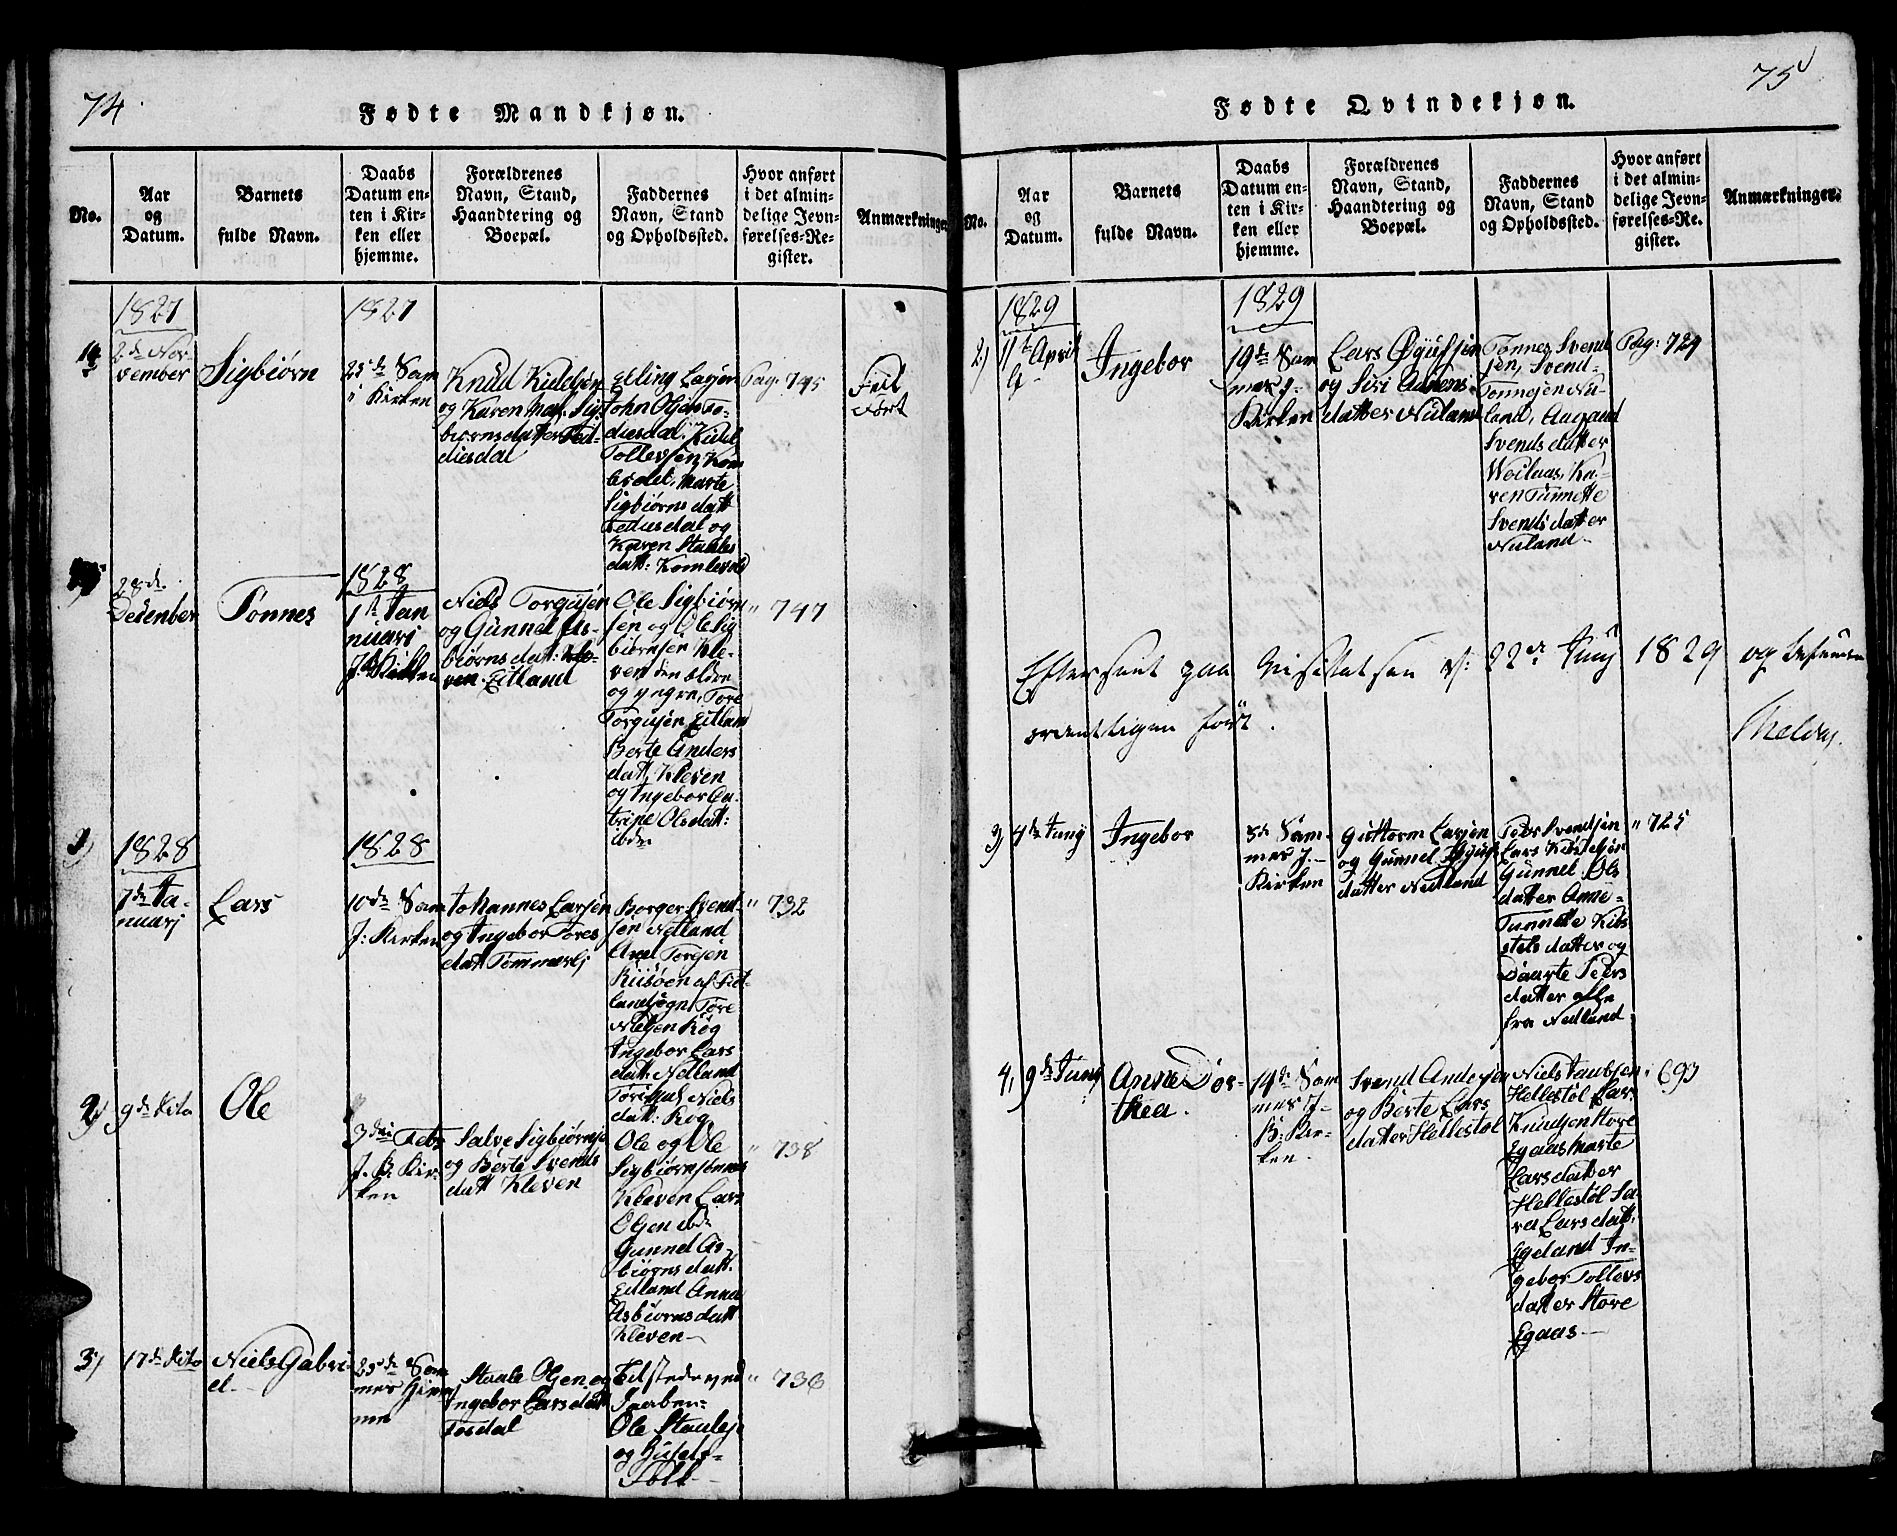 74.
Fødte Mandkjøn.
No.
Aar
og
Datum.
Barnets
fulde Navn.
Daabs
Datum en-
ten i Kir-
ken eller
hjemme.
Forældrenes
Navn, Stand,
Haandtering og
Boepæl.
Faddernes
Navn, Stand
og Opholdssted.
Hvor anført
i det almin-
delige Jevn-
førelses-Re-
gister.
Anmærkninger
1827
2de No-
vember
Sigbiørn
1827
25de Sam
i Kirken
Knud Kidelsen
og Karen Mar: Sig-
biørnsdatter Fed-
diesdal
Elling Larsen
John Olsen Fe-
diesdal, Kidel
Tollevsen Kom
levold, Marte
Sigbiørnsdatt
Fediesdal og
Karen Staales
datt: Komlevold
Pag. 745
Feil
ført
28de
Desember
Tønnes
1828
1te Jan
nuari
J: Kirken
Niels Torgusen
og Gunnel As-
biørnsdatt: Kle-
ven Eitland
Ole Sigbiørn
sen og Ole Sig
biørnsen Kle-
ven den eldre
og yngre, Tore
Torgusen Eitland
Berte Anders
datt, Kleven
og Ingebor Ca-
trine Olsdatt:
ibde
" 747
1)
1828
7de Ja-
nuari
Lars
1828
10de Sam
J: Kirken
Johannes Larsen
og Ingebor Tores
datt Tømmerli
Borger Svend-
sen Nedland
Axel Torgsen
Riisøen af Fit-
landsogn Tore
Nielsen Røg
Ingebor Lars
datt: Nedland
Niels
datt: Røg
" 732
2)
9de dito
Ole
3die Febr
J. B: Kir-
ken
Salve Sigbiørnse
og Berte Svends
datt Kleven
Ole og Ole
Sigbiørnsønner
Kleven Lars
Olsen ibde
Gunnel As-
biørnsdatt.
Eitland Anna
Asbiørnsdatt
Kleven
" 738
3)
17de dito
Niels Gabri
el.
25de Sam
mes Hiem
me
Staale Olsen og
Ingebor Larsdatt
Tosdal
Tilstede ved
Daaben:
Ole Staales
og
Folk
" 736
75
Fødte Qvindekjøn.
No.
Aar
og
Datum.
Barnets
fulde Navn.
Daabs
Datum en-
ten i Kir-
ken eller
hjemme.
Forældrenes
Navn, Stand,
Haandtering og
Boepæl.
Faddernes
Navn, Stand
og Opholdssted.
Hvor anført
i det almin-
delige Jevn-
førelses-Re-
gister.
Anmærkninger.
1829
2)
11te April
Ingebor
1829
19de Sam
mes J-
Kirken
Lars Øyufsen
og Siri Adnens-
datter Nuland
Tønnes Svend
sen, Svend
Tønnesen Nu-
land, Aagaard
Svendsdatter
Ka-
ren Tunnette
Svendsdatter
Nuland
Pag: 724
Efterseet paa Visitatsen d: 22de Juny 1829 og befunden
ordentligen ført.
3)
4de Juny
Ingebor
8de Sam-
mes J.
Kirken
Guttorm Larsen
og Gunnel Øyufs
datter Nedland
Peder Svendsen
Lars Kitilsen
Gunnel Ols
datter Anne
Tunnette Kit-
stelsdatter og
Daarte Peders
datter alle
fra Nedland
" 725
4,
9de Juny
Anne Dor-
thea.
14de Sam
mes J-
B: Kir-
ken.
Svend Andersen
og Berte Lars
datter Hellestøl
Niels Jaabsen
Hellestøl Lars
Knudsen Store
Egaas Marte
Larsdatter
Hellestøl Sa-
ra Larsdatt:
Egeland In-
gebor Tollevs
datter Store
Egaas
" 693